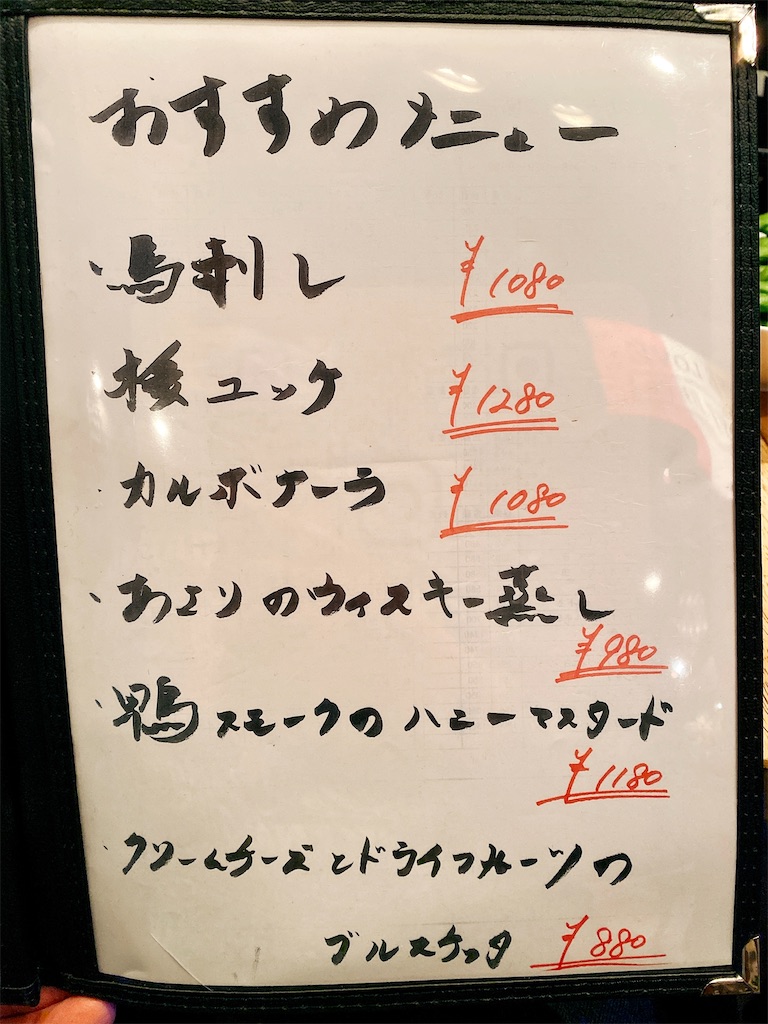 おすすめメニュー
・馬刺し ¥1080
・桜ユッケ ¥1280
・カルボナーラ ¥1080
・あさりのウィスキー蒸し
¥980
・鴨スモークのハニーマスタード
¥1180
・クリームチーズとドライフルーツの
ブルスケッタ ¥880